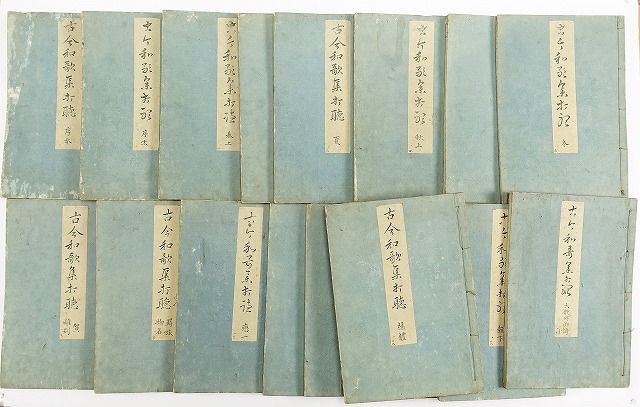 古今和歌集打聴
序本
古今和歌集打聴
序末
古今和歌集打聴
春上
古今和歌集打聴
夏
古今和歌集打聴
秋上
古今和歌集打聴
冬
古今和歌集打聴
賀
離別
古今和歌集打聴
羇旅
物名
古今和歌集打聴
恋一
古今和歌集打聴
古今和歌集打聴
雑下
古今和歌集打聴